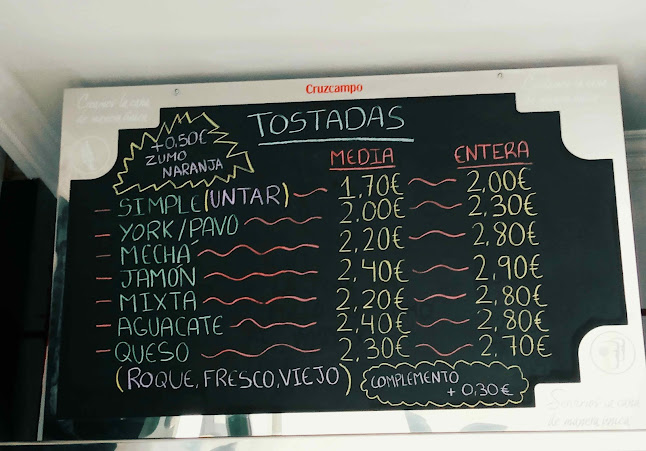 Cruzcampo
TOSTADAS
+0,50€
ZUMO
NARANJA
MEDIA ENTERA
– SIMPLE (UNTAR) 1,70€ 2,00€
– YORK/PAVO 2,00€ 2,30€
– MECHÁ 2,20€ 2,80€
– JAMÓN 2,40€ 2,90€
– MIXTA 2,20€ 2,80€
– AGUACATE 2,40€ 2,80€
– QUESO 2,30€ 2,70€
(ROQUE, FRESCO, VIEJO)
COMPLEMENTO
+0,30€